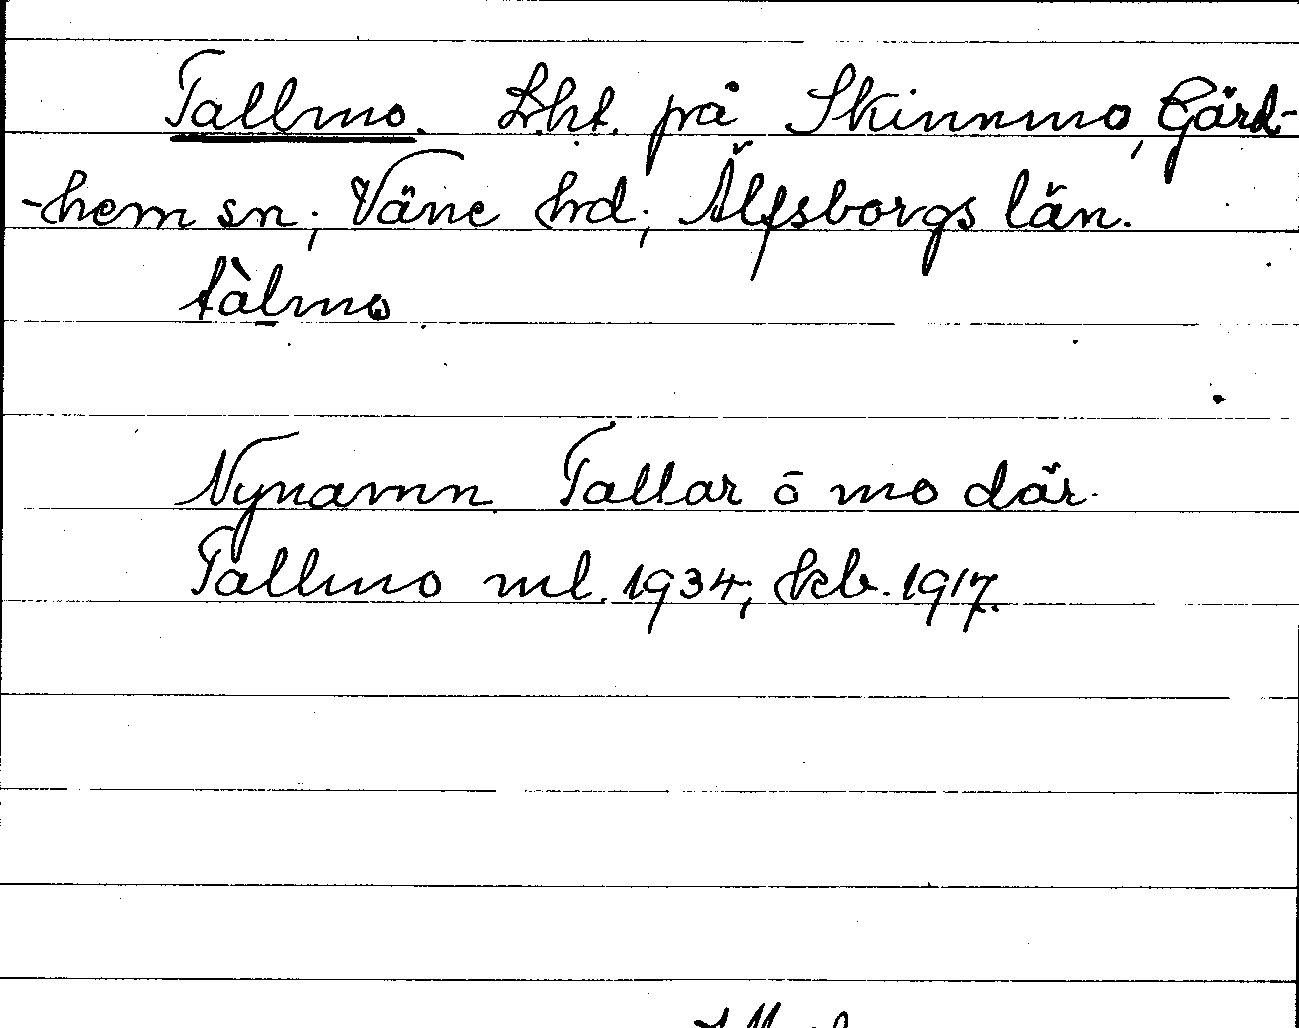 Tallmo. Lht. på Skinnmo, Gärd-
-hem sn; Väne hd; Älfsborgs län.
tàlmo
Nynamn. Tallar ō mo där.
Tallmo ml. 1934; kb. 1917.